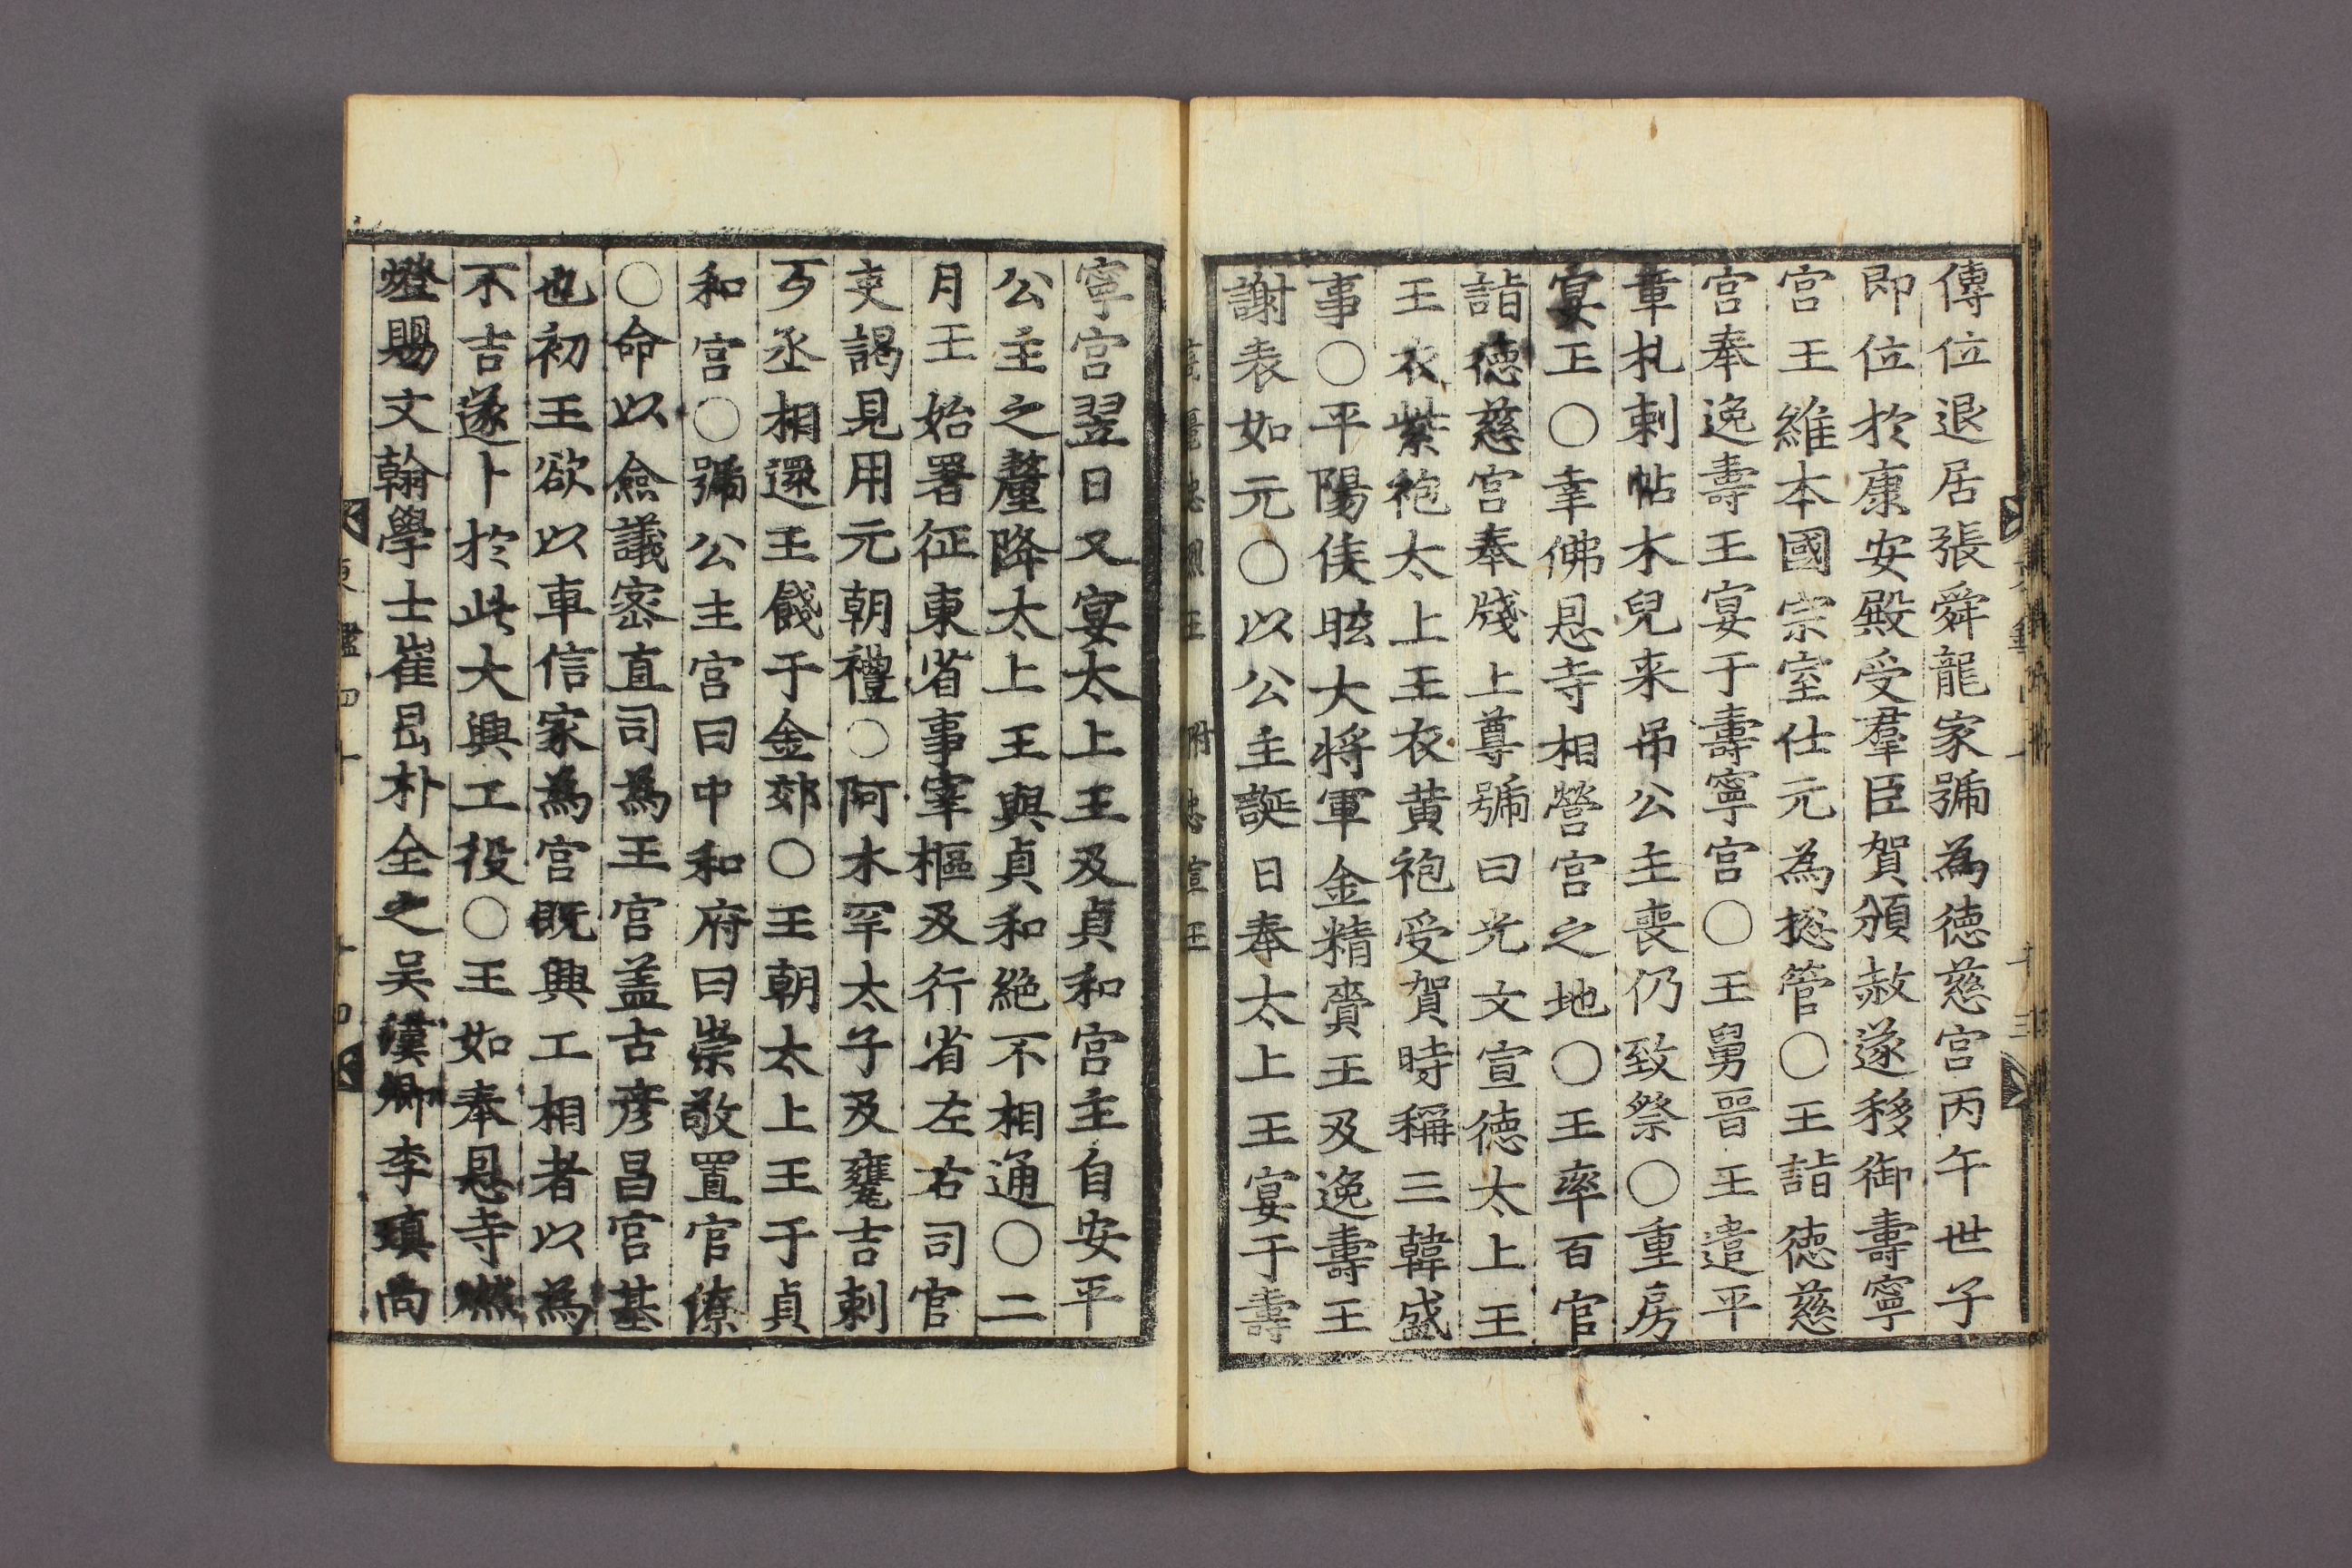 傳位退居張舜龍家號為德慈宮丙午世子
即位於康安殿受羣臣賀頒赦遂移御壽寧
宮王維本國宗室仕元為摠管○王詣德慈
宮奉逸壽王宴于壽寧宮○王舅晋王遣平
章札剌帖木兒来吊公主喪仍致祭○重房
宴王○幸佛恩寺相營宮之地○王率百官
詣德慈宮奉牋上尊號曰光文宣德太上王
王衣紫袍太上王衣黃袍受賀時稱三韓盛
事○平陽侯昡大将軍金精賫王及逸壽王
謝表如元○以公主誕日奉太上王宴于壽
寧宮翌日又宴太上王及貞和宮主自安平
公主之釐降太上王與貞和絶不相通○二
月王始署征東省事宰樞及行省左右司官
吏謁見用元朝禮○阿木罕太子及甕吉剌
丂丞相還王餞于金郊○王朝太上王于貞
和宮○號公主宮曰中和府曰崇敬置官僚
○命以僉議密直司為王宮盖古彦昌宮基
也初王欲以車信家為宮既興工相者以為
不吉遂卜於此大興工役○王如奉恩寺燃
燈賜文翰學士崔旵朴全之吴漢卿李瑱尚